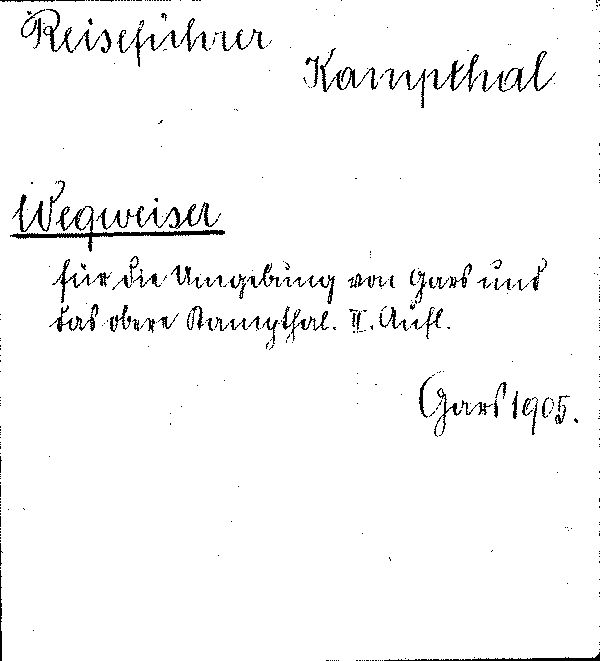 Reiseführer
Kampthal
Wegweiser
für die Umgebung von Gars und
das obere Kampthal. II. Aufl.
Gars 1905.